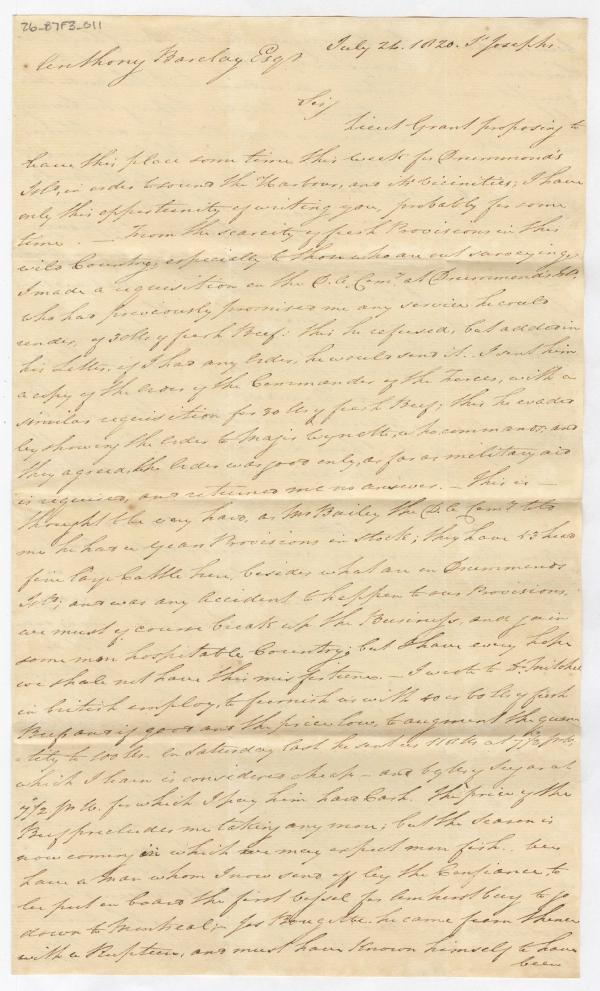 26-87F3-011
July 26. 1820. St Josephs
Anthony Barclay Esqr
Sir,
Lieut Grant proposing to
leave this place some time this week for Drummond's
Isld, in order to sound the Harbour, and its vicinities; I have
only this oppertunity of writing you, probably for some
time. — From the scarcity of fresh Provisions in this
wild Country, especially to those who are out surveying,
I made a requisition on the D. C. Comy at Drummonds Isld.
who has previously promised me any service he could
render, of 30 lbs of fresh Beef: this he refused, but added in
his letter, if I had any Order, he would send it. I sent him
a copy of the Order of the Commander of the Forces, with a
similar requisition for 30 lbs of fresh Beef; this he evaded
by showing the Order to Major Wynette, who commands; and
they agreed, the Order was good only, as far as military aid
is required, and returned me no answer. — This is —
thought to be very hard, as Mr Bailey the D. C. Comy told
me he had a years Provisions in store; they have 23 head
fine large Cattle here, besides what are on Drummonds
Isld; and was any accident to happen to our Provisions,
we must of course break up the Business, and gain
some more hospitable Country; but I have every hope
we shall not have this misfortune. — I wrote to Dr Mitchel
in british employ, to furnish us with 40 or 60 lbs of fresh
Beef and if good and the price low, to augment the quan
-tity to 100 lbs. On Saturday last he sent us 118 lbs at 7½ pr lb,
which I learn is considered cheap — and lbs of Sugar at
pr lb. for which I pay him hard Cash. The price of the
Beef precludes me taking any more; but the season is
now coming in which we may expect more fish.. We
have a man whom I now send off by the Confiance, to
be put on board the first Vessel for Amherstburg to go
down to Montreal; he came from thence
with a Rupture, and must have known himself to have
been